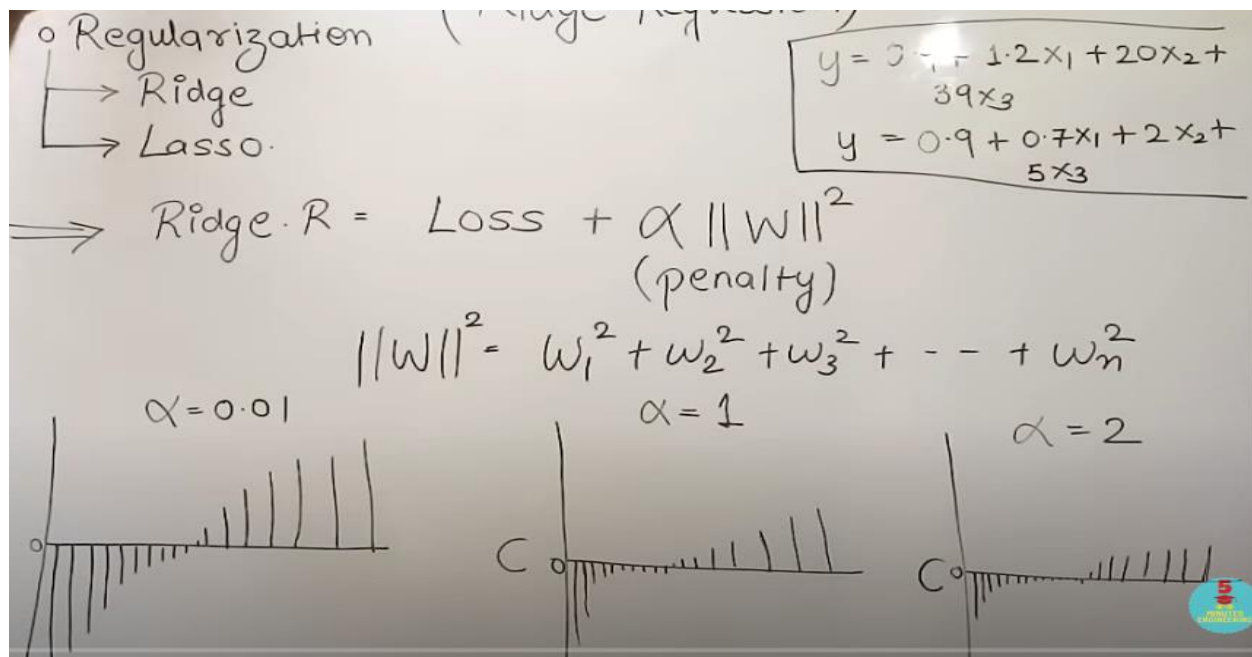 o Regularization (Ridge Regression)
→ Ridge
→ Lasso.
1.2x₁ + 20x₂ +
39x₃
y = 0.9 + 0.7x₁ + 2x₂ +
5x₃
⇒ Ridge.R = Loss + α ||W||²
(penalty)
||W||² = w₁² + w₂² + w₃² + - - + wₙ²
α = 0.01
α = 1
α = 2
0
C 0
C 0
5
MINUTES
ENGINEERING